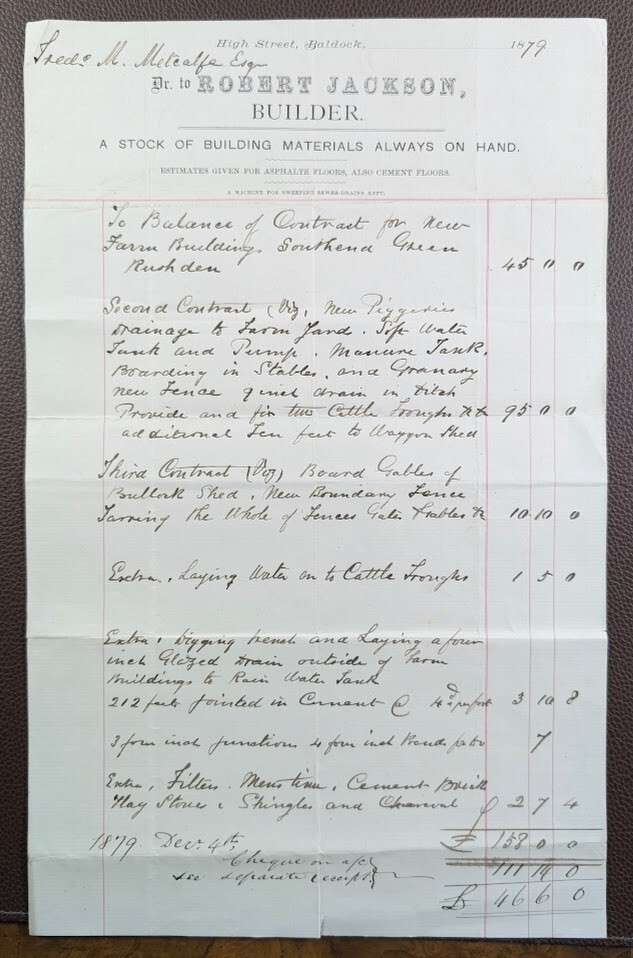 High Street, Baldock, 1879
Fredc. M. Metcalfe Esqr
Dr. to ROBERT JACKSON,
BUILDER.
A STOCK OF BUILDING MATERIALS ALWAYS ON HAND.
ESTIMATES GIVEN FOR ASPHALTE FLOORS, ALSO CEMENT FLOORS.
A MACHINE FOR SWEEPING SEWER-DRAINS KEPT.
To Balance of Contract for New
Farm Buildings Southend Green
Rushden 45 0 0
Second Contract (Viz, New Piggeries
Drainage to Farm Yard. Soft Water
Tank and Pump. Manure Tank.
Boarding in Stables, and Granary
New Fence 9 inch drain in Ditch
Provide and fix the Cattle Troughs 95 0 0
additional Ten feet to Waggon Shed
Third Contract (Viz) Board Gables of
Bullock Shed, New Boundary Fence
Tarring the Whole of Fences Gates Stables &c 10 10 0
Extra. Laying Water on to Cattle Troughs 1 5 0
Extra, Digging trench and Laying a four
inch Glazed Drain outside of Farm
Buildings to Rain Water Tank
212 feet Jointed in Cement @ 4d per foot 3 10 8
3 four inch junctions 4 four inch Bends 7
Extra, Filters. , Cement Brick
Stones & Shingles and Charcoal 2 7 4
1879 Decr 4th, £ 158 0 0
Cheque on a/c 111 14 0
see separate receipt
£ 46 6 0